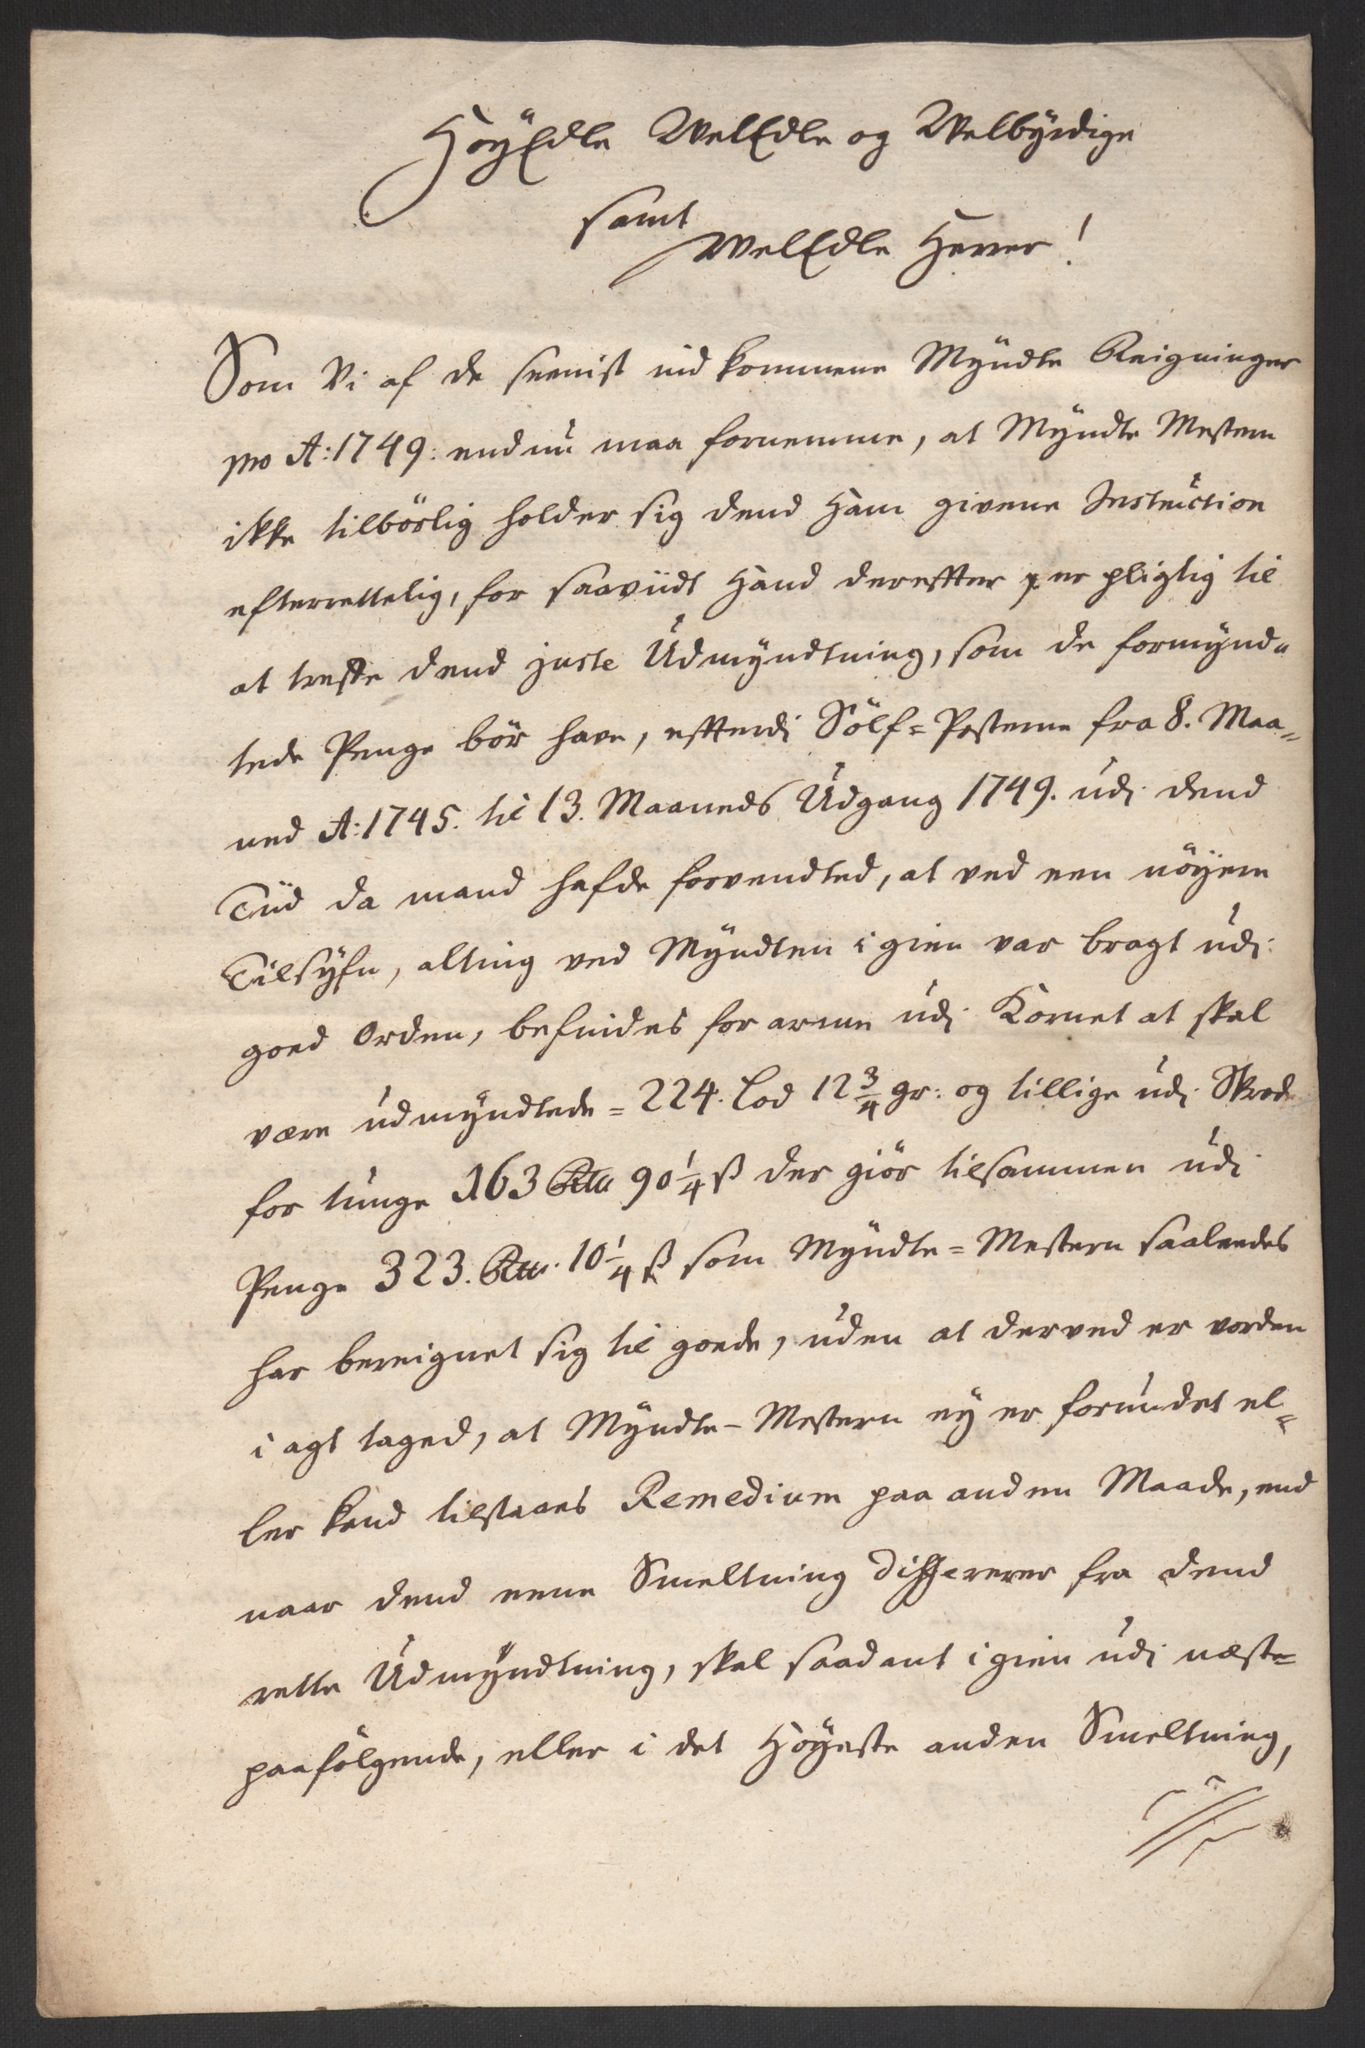 HöyEdle WelEdle og Welbÿrdige
samt
WelEdle Herrer!
Som Vi af de seenist ind kommene Mÿndte Reigninger
pro A: 1749: endnu maa fornemme, at Mÿndte Mestern
ikke tilbörlig holder sig dend Ham givene Instruction
efterrettelig, for saaviidt Hand dereffter er pligtig til
at treffe dend juste Udmÿndtning, som de formÿnd-
tede Penge bör have, efftterdi Sölf-Posterne fra 8. Maa-
ned A: 1745. til 13. Maaneds Udgang 1749. udi dend
Tiid da mand hafde forvendted, at ved een nöÿere
Tilsÿfn, alting ved Mÿndten i gien var bragt udi
goed Orden, befindes for arme udi Kornet at skal
være udmÿndtede = 224. Lod 12 3/4 gr: og tillige udi Skrode
for tunge 163 Rdr 90 1/4 ß der giör tilsammen udi
Penge 323. Rdr. 10 1/4 ß som Mÿndte-Mestern saaleedes
har bereignet sig til goede, uden at derved er vorden
i agt taged, at Mÿndte-Mestern eÿ er forundet el-
ler kand tilstaaes Remedium paa anden Maade, end
naar dend eene Smeltning differerer fra dend
rette Udmÿndtning, skal saadant igien udi næst-
paafölgende, eller i det Höÿeste anden Smeltning,